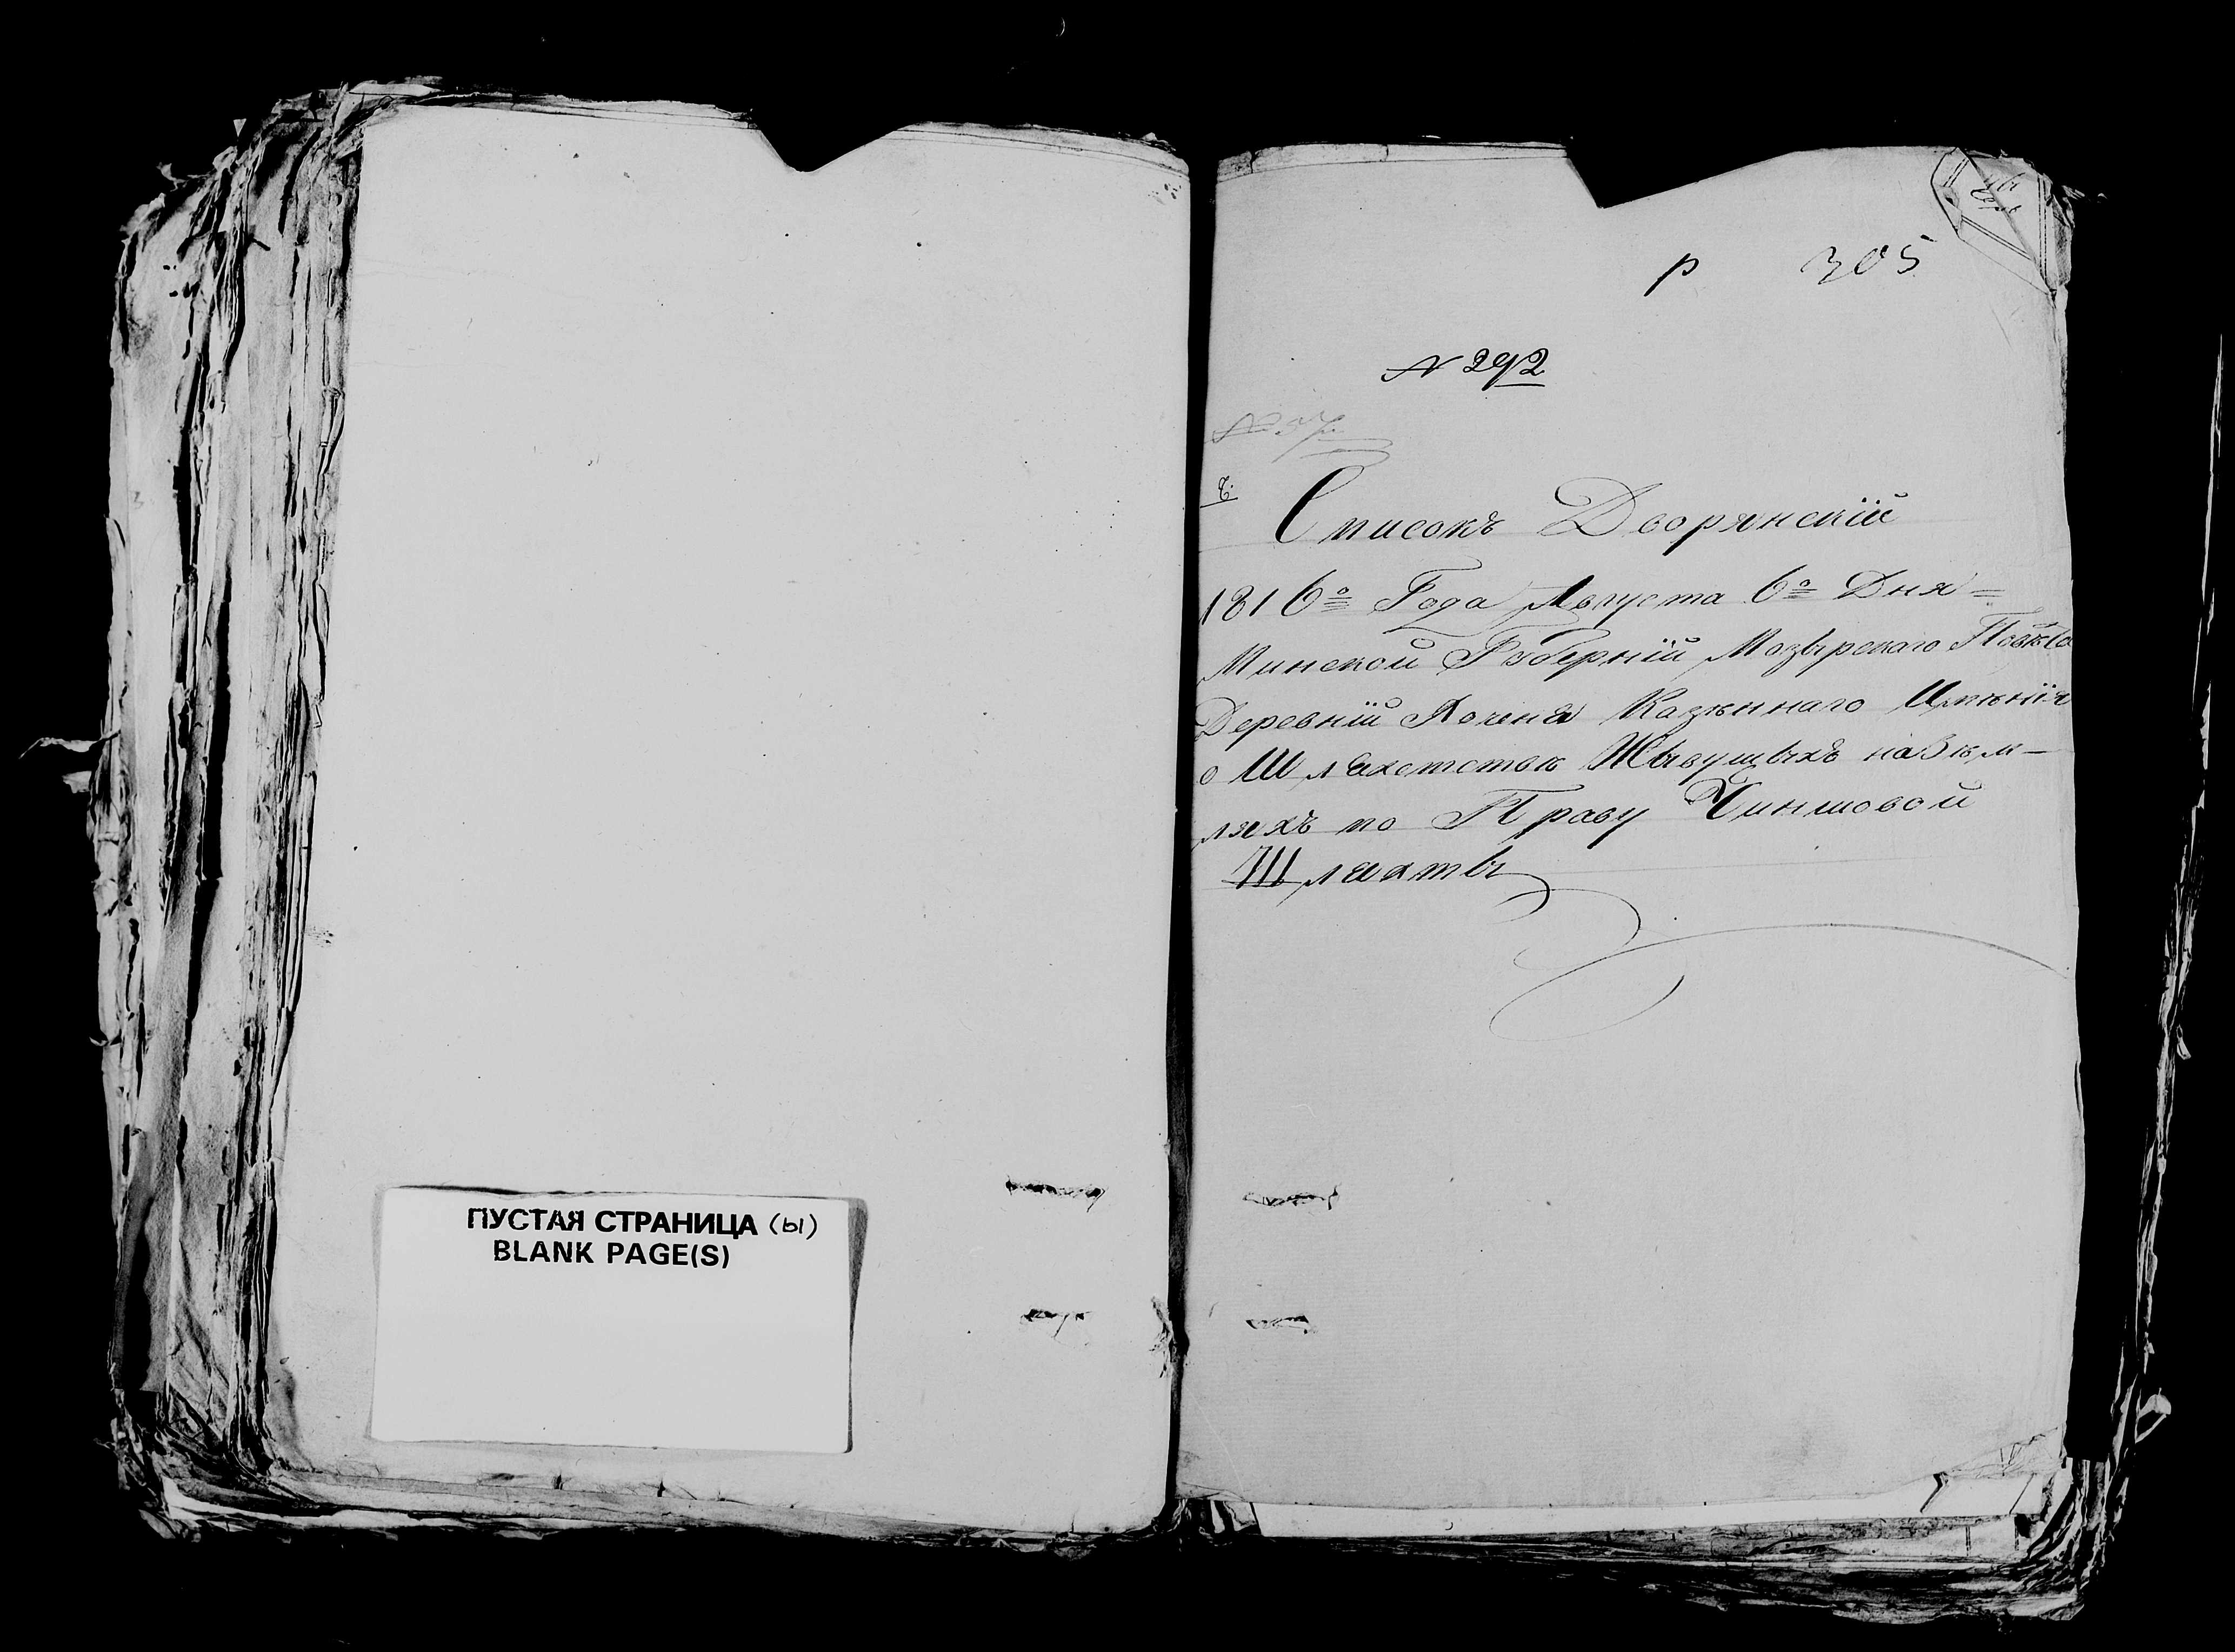 ПУСТАЯ СТРАНИЦА (ы)
BLANK PAGE(S)
р 305
№ 292
№ 57
Списокъ Дворянскій
1816го Года Августа 6го Дня =
Минской Губерніи Мозырского Повѣта
Деревніи Казіоннаго Имѣнія
о Шляхетстве Жывущыхъ на Зѣм-
ляхъ по Праву Чиншовой
Шляхты